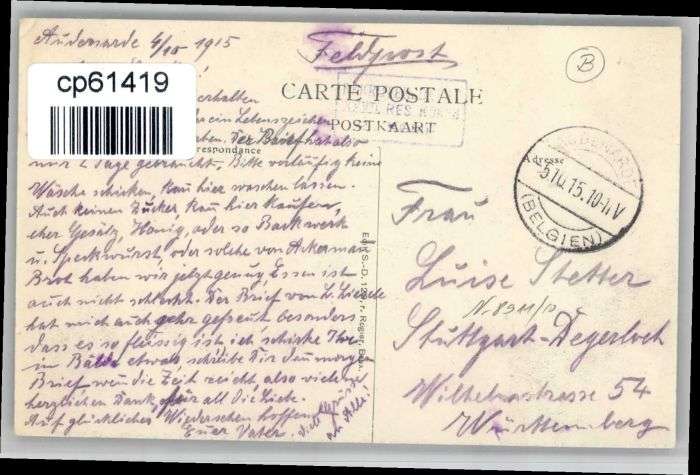 Audenarde 4/10 1915
Feldpost
B
cp61419
erhalten
ein Lebenszeichen
Der Brief hat also
nur 2 Tage gebraucht, Bitte vorläufig keine
Wäsche schicken, kan hier waschen lassen.
Auch keinen Zucker, kan hier kaufen,
eher Gesälz, Honig, oder so Backwerk
u. Speckwurst, oder solche von Ackerman
Brot haben wir jetzt genug Essen ist
auch nicht schlecht. Der Brief von L. Lisele
hat mich auch sehr gefreut besonders
dass es so fleissig ist, ich schicke Ihr
in Bälde etwas, schreibe Dir den morgen
Brief wen die Zeit reicht, also vielen
herzlichen Dank, für all die Liebe.
Auf glückliches Wiedersehen hoffend
Euer Vater.
Viele Grüsse
an Alle!
CARTE POSTALE
POSTKAART
respondance
Adresse
5.10.15.10-11V
(BELGIEN)
Frau
Luise Stetter
Stuttgart-Degerloch
Wilhelmstrasse 54
Württemberg